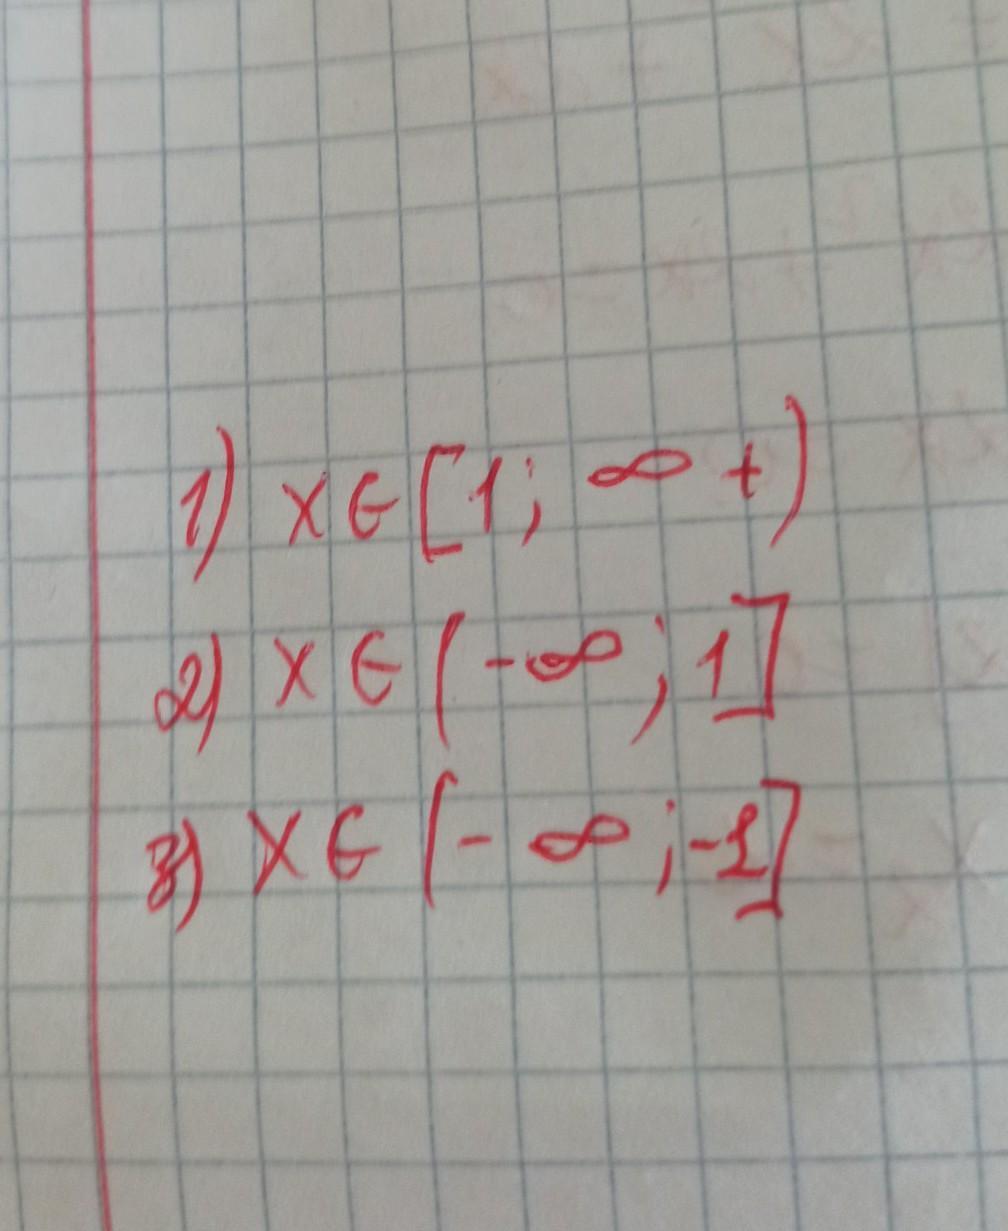 1) x ∈ [1; ∞ +)
2) x ∈ (-∞; 1]
3) x ∈ (- ∞; -1]